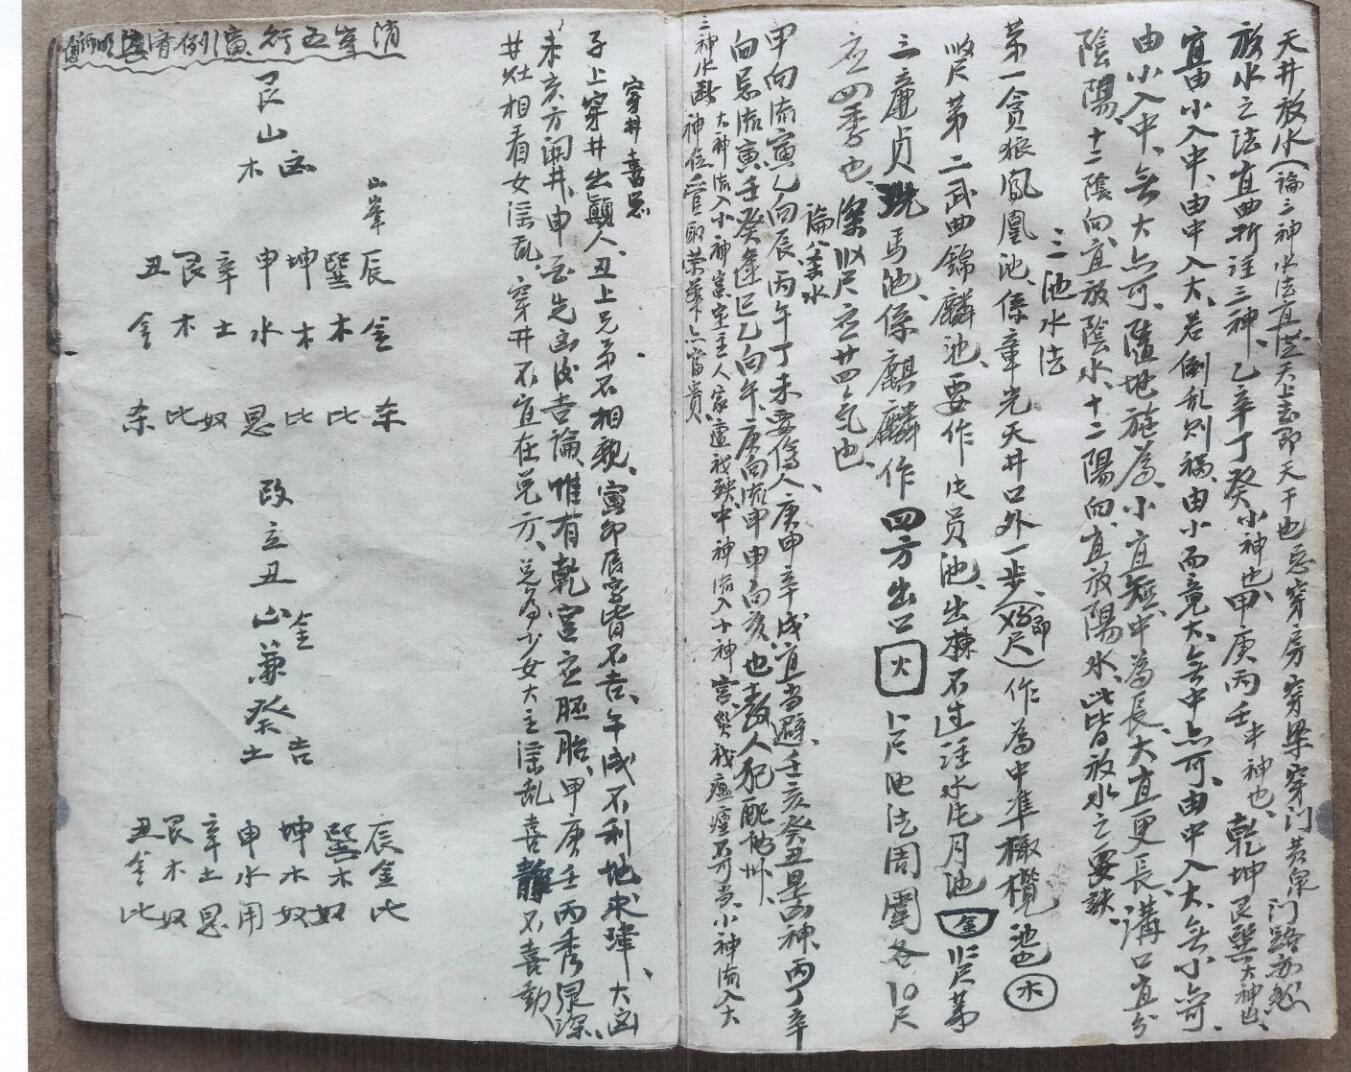 天井放水(論三神水法宜從天上去即天干也忌穿房穿梁穿门黄泉门路亦忌
放水之法宜曲折注三神、乙辛丁癸小神也、甲庚丙壬中神也、乾坤艮巽大神也、
宜由小入中、由中入大、若倒乱则禍、由小而竟大、無中点可、由中入大、無小点可、
由小入中、無大点可、隨地施為、小宜短、中為長、大宜更長、溝口宜分
陰陽、十二陰向宜放陰水、十二陽向宜放陽水、此皆放水之要訣、
三池水法
第一貪狼鳳凰池、係章光天井口外一步、(即 尺)作為中準橄欖池也(水)
尺第二武曲錦麟池、要作 员池、出棟不过注水 月池 金 尺第
三廉貞 馬池、係麒麟作四方出口 火 尺池法周圍各10尺
应四季也、深 尺应廿四气也、
論 水
甲向流寅乙向辰、丙午丁未要傷人、庚申辛戌宜当避、壬亥癸丑是凶神、丙丁辛
向忌流寅、壬癸逢巳乙向午、庚向流申甲向亥、也教人犯配他州、
三神水断 大神流入小神宫、宅主人家遭 殃、中神流入十神宫、 瘟 不可当、小神流入大
神位、管取荣華点富貴、
穿井喜忌
子上穿井出顛人、丑上兄弟不相親、寅卯辰宫皆不吉、午戌不利地求 、大凶
未亥方開井、申酉先凶後吉論、惟有乾宫应胚胎、甲庚壬丙秀 深、
井灶相看女淫乱、穿井不宜在兑方、兑為少女大主淫乱喜靜不喜動、
消峯五行 例
艮山木 凶
山峯
辰 巽 坤 申 辛 艮 丑
金 木 木 水 土 木 金
杀 比 比 恩 奴 比 杀
改立丑山兼癸 金 土 吉
辰 巽 坤 申 辛 艮 丑
金 木 木 水 土 木 金
比 奴 奴 用 恩 奴 比